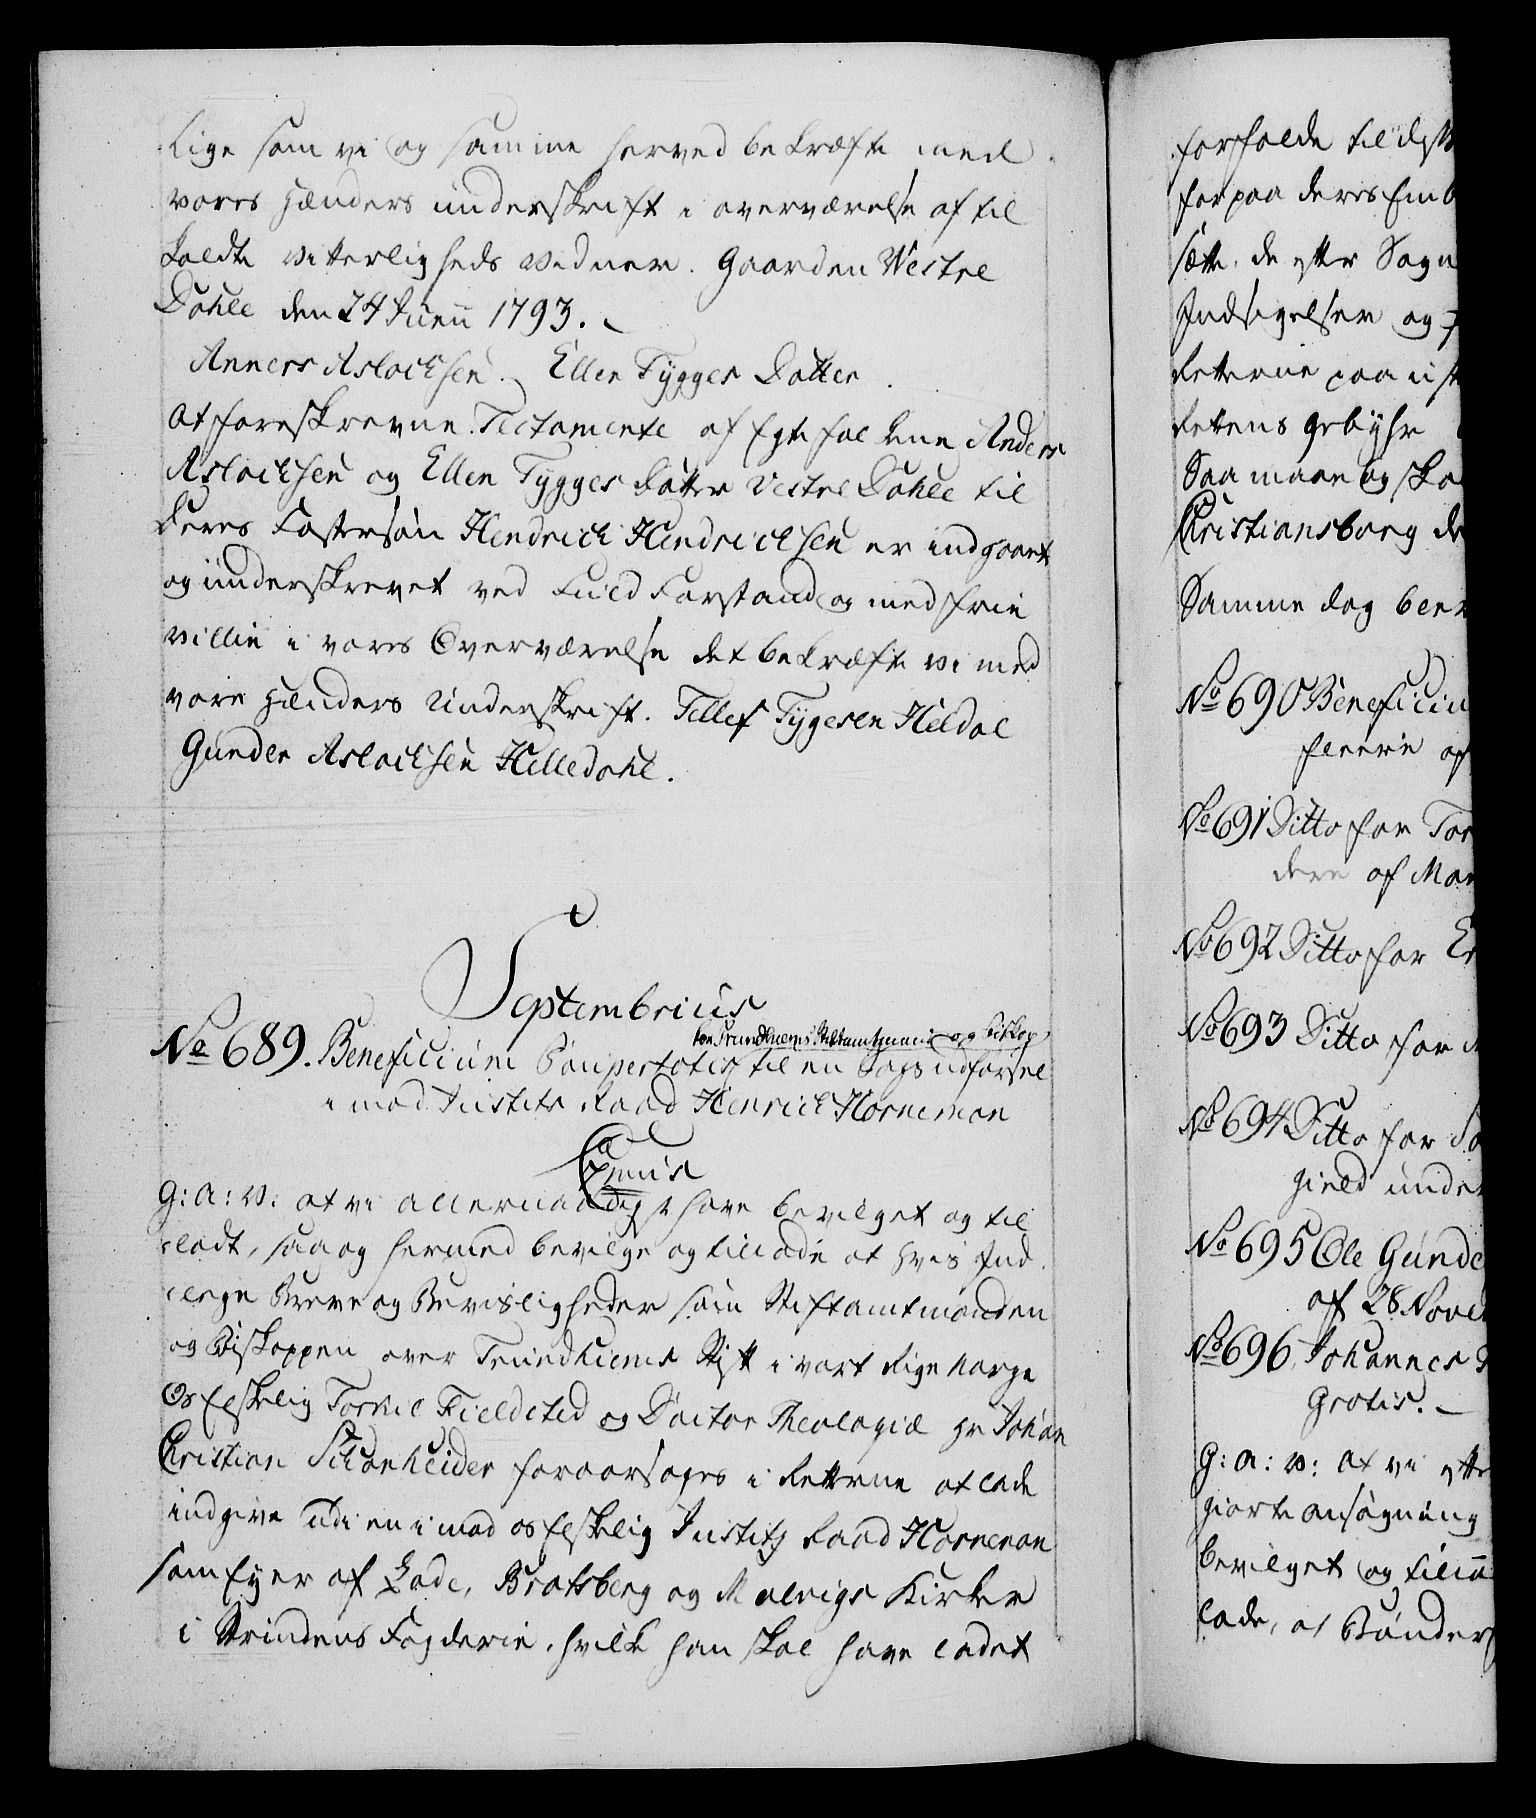 lige som vi og samme herved bekræfte med
vores Hænders underskrift i overværelse af til
kaldte vitterligheds vidner. Gaarden Westre
Dahle den 24 Juni 1793.
Anners Aslachsen. Ellen Tygges Datter.
At foreskrevne Testamente af Egtefolkene Anders
Aslachsen og Ellen Tygges datter Vestre Dahle til
deres Fostersøn Hendrich Hendrichsen er indgaaet
og underskrevet ved Fuld Forstand og med frie
villie i vores Overværelse det bekræfte vi med
vore Hænders Underskrift. Tellef Tygesen Heldal
Gunder Aslachsen Helledahl.
Septembrius
for Trundhiems Stiftamtmand og Biskop
No 689. Beneficium Paupertatis til en Sags udførsel
imod Justits Raad Henrich Horneman
G: A: V: at vi allernaadigst have bevilget og til
ladt, saa og hermed bevilge og tillade at hvis Ind
lege Breve og Bevisligheder som Stiftamtmanden
og Biskoppen over Trundhiems Stift i vort Rige Norge
Os Elskelig Torkel Fieldsted og Doctor Theologiæ Hr Johan
Christian Schönheider foraarsages i Retterne at lade
indgive udi en imod os Elskelig Justitz Raad Horneman
som Eyer af Lade, Bratsberg og Malvigs Kirker
i Strindens Fogderie, hvilke han skal have ladet
forholde til dets
for paa deres Emb
sætte, de ytter Sagn
Indsigelser og
Retterne paa u st
Rettens gebyhr
Saa maae og ska
Christiansborg de
Samme dag blev
No 690 Beneficiu
fleere af
No 691 Ditto for Tor
dere af Mar
No 692 Ditto for
No 693 Ditto for
No 694 Ditto for So
gield under
No 695 Ole Gunde
af 28 Nove
No 696 Johannes
Gratis.
G: A: V: at vi ytte
giorte ansøgning
bevilget og till
lade, at Bønder